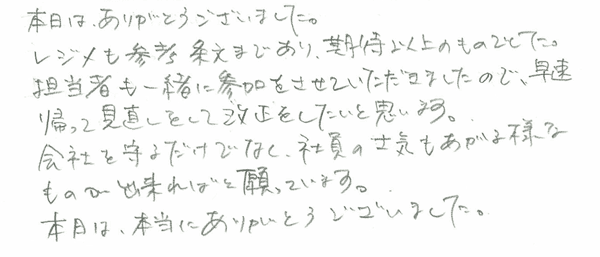 本日は、ありがとうございました。
レジメも参考条文まであり、期待以上のものでした。
担当者も一緒に参加をさせていただきましたので、早速
帰って見直しをして改正をしたいと思います。
会社を守るだけでなく、社員の士気もあがる様な
ものが出来ればと願っています。
本日は、本当にありがとうございました。